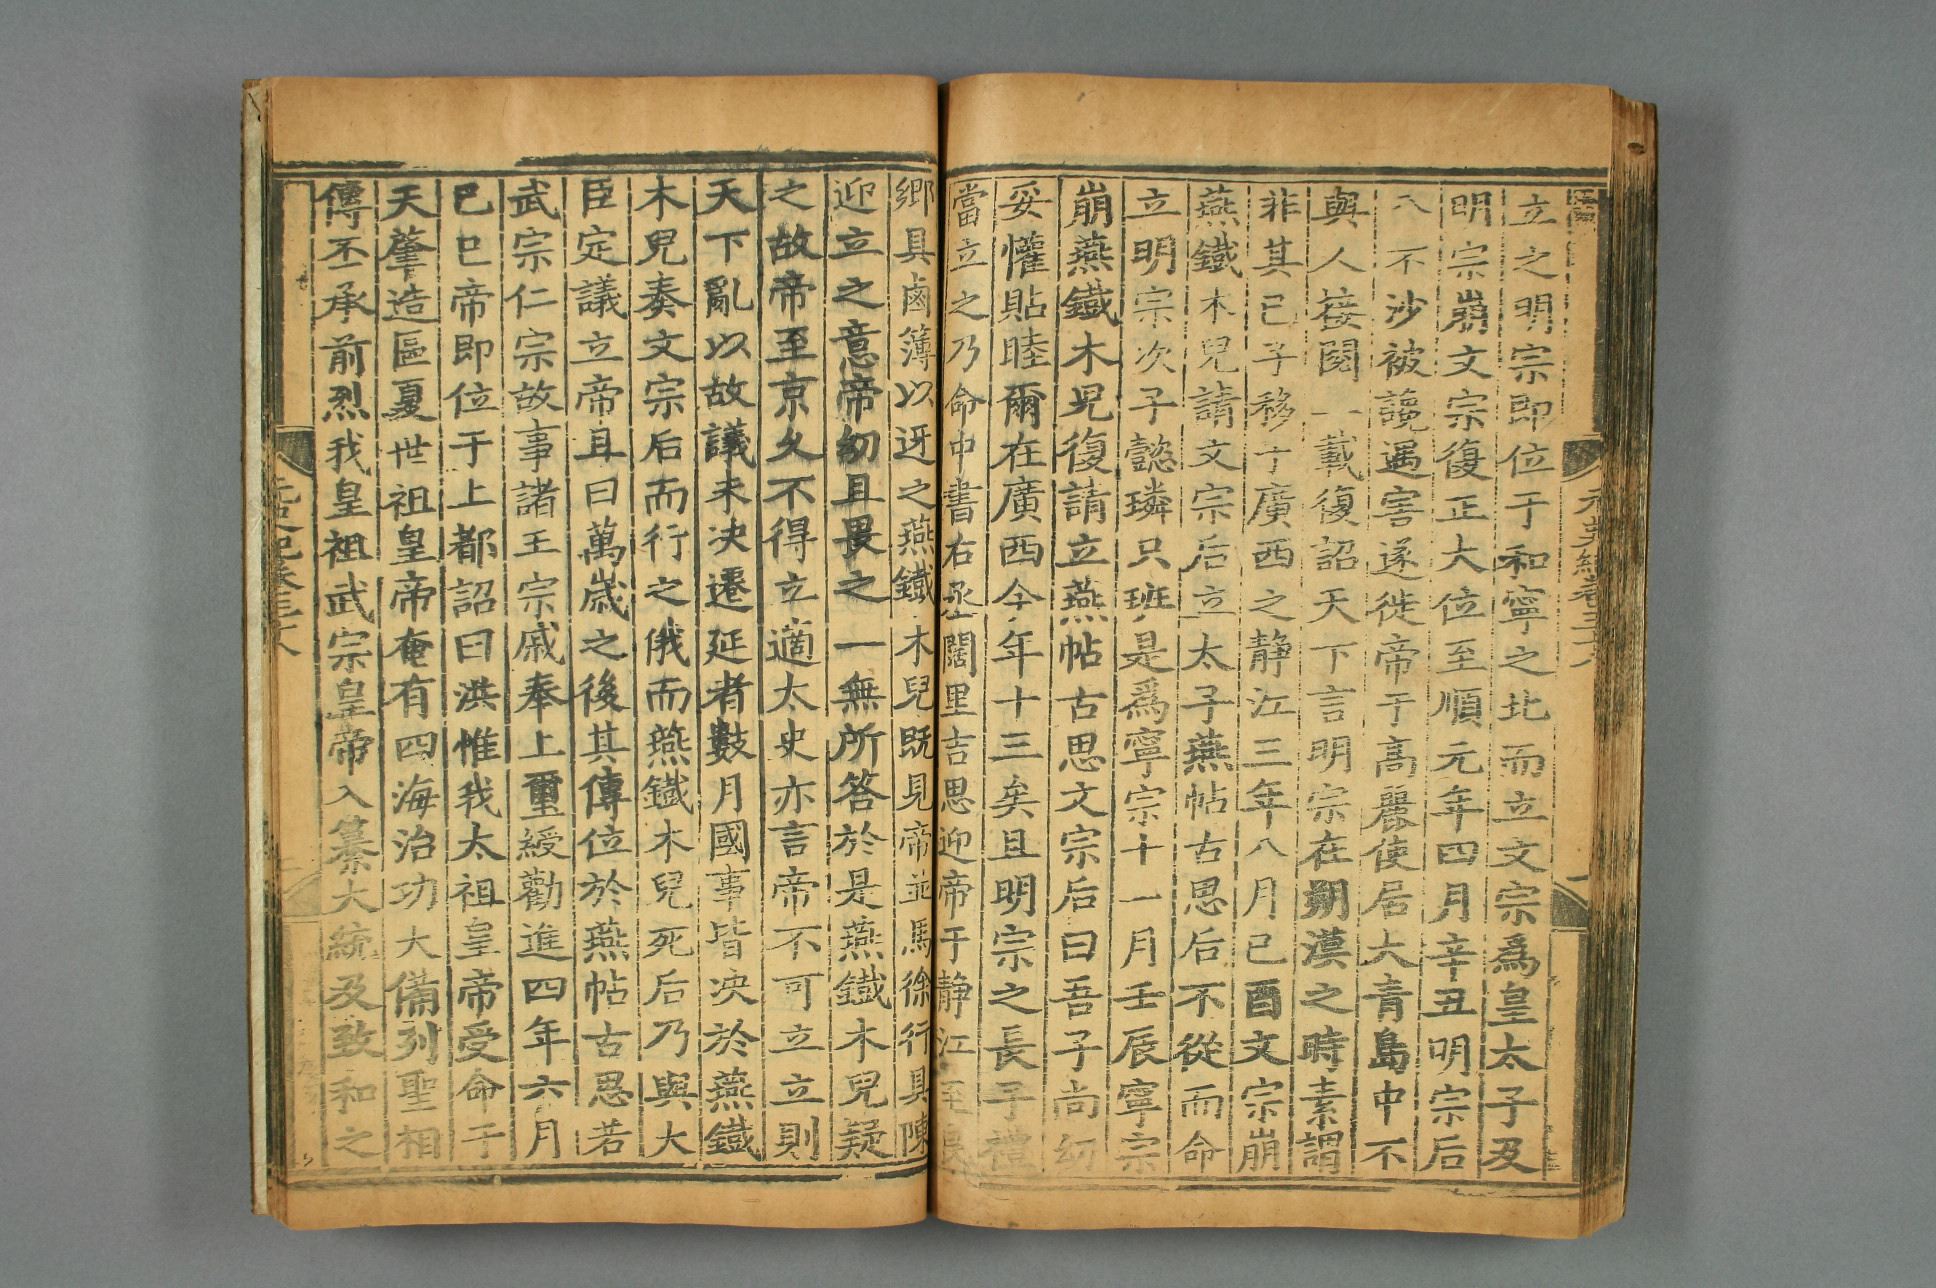 立之明宗即位于和寧之北而立文宗爲皇太子及
明宗崩文宗復正大位至順元年四月辛丑明宗后
八不沙被讒遇害遂徙帝于高麗使居大青島中不
與人接閱一載復詔天下言明宗在朔漠之時素謂
非其己子移于廣西之靜江三年八月己酉文宗崩
燕鐵木兒請文宗后立太子燕帖古思后不從而命
立明宗次子懿璘只班是爲寧宗十一月壬辰寧宗
崩燕鐵木兒復請立燕帖古思文宗后曰吾子尚幼
妥懽貼睦爾在廣西今年十三矣且明宗之長子禮
當立之乃命中書右丞闊里吉思迎帝于靜江至良
鄉具鹵簿以迓之燕鐵木兒既見帝並馬徐行具陳
迎立之意帝幼且畏之一無所答於是燕鐵木兒疑
之故帝至京久不得立適太史亦言帝不可立立則
天下亂以故議未決遷延者數月國事皆决於燕鐵
木兒奏文宗后而行之俄而燕鐵木兒死后乃與大
臣定議立帝且曰萬歲之後其傳位於燕帖古思若
武宗仁宗故事諸王宗戚奉上璽綬勸進四年六月
己巳帝即位于上都詔曰洪惟我太祖皇帝受命于
天肇造區夏世祖皇帝奄有四海治功大備列聖相
傳丕承前烈我皇祖武宗皇帝入纂大統及致和之
元史紀卷三十八